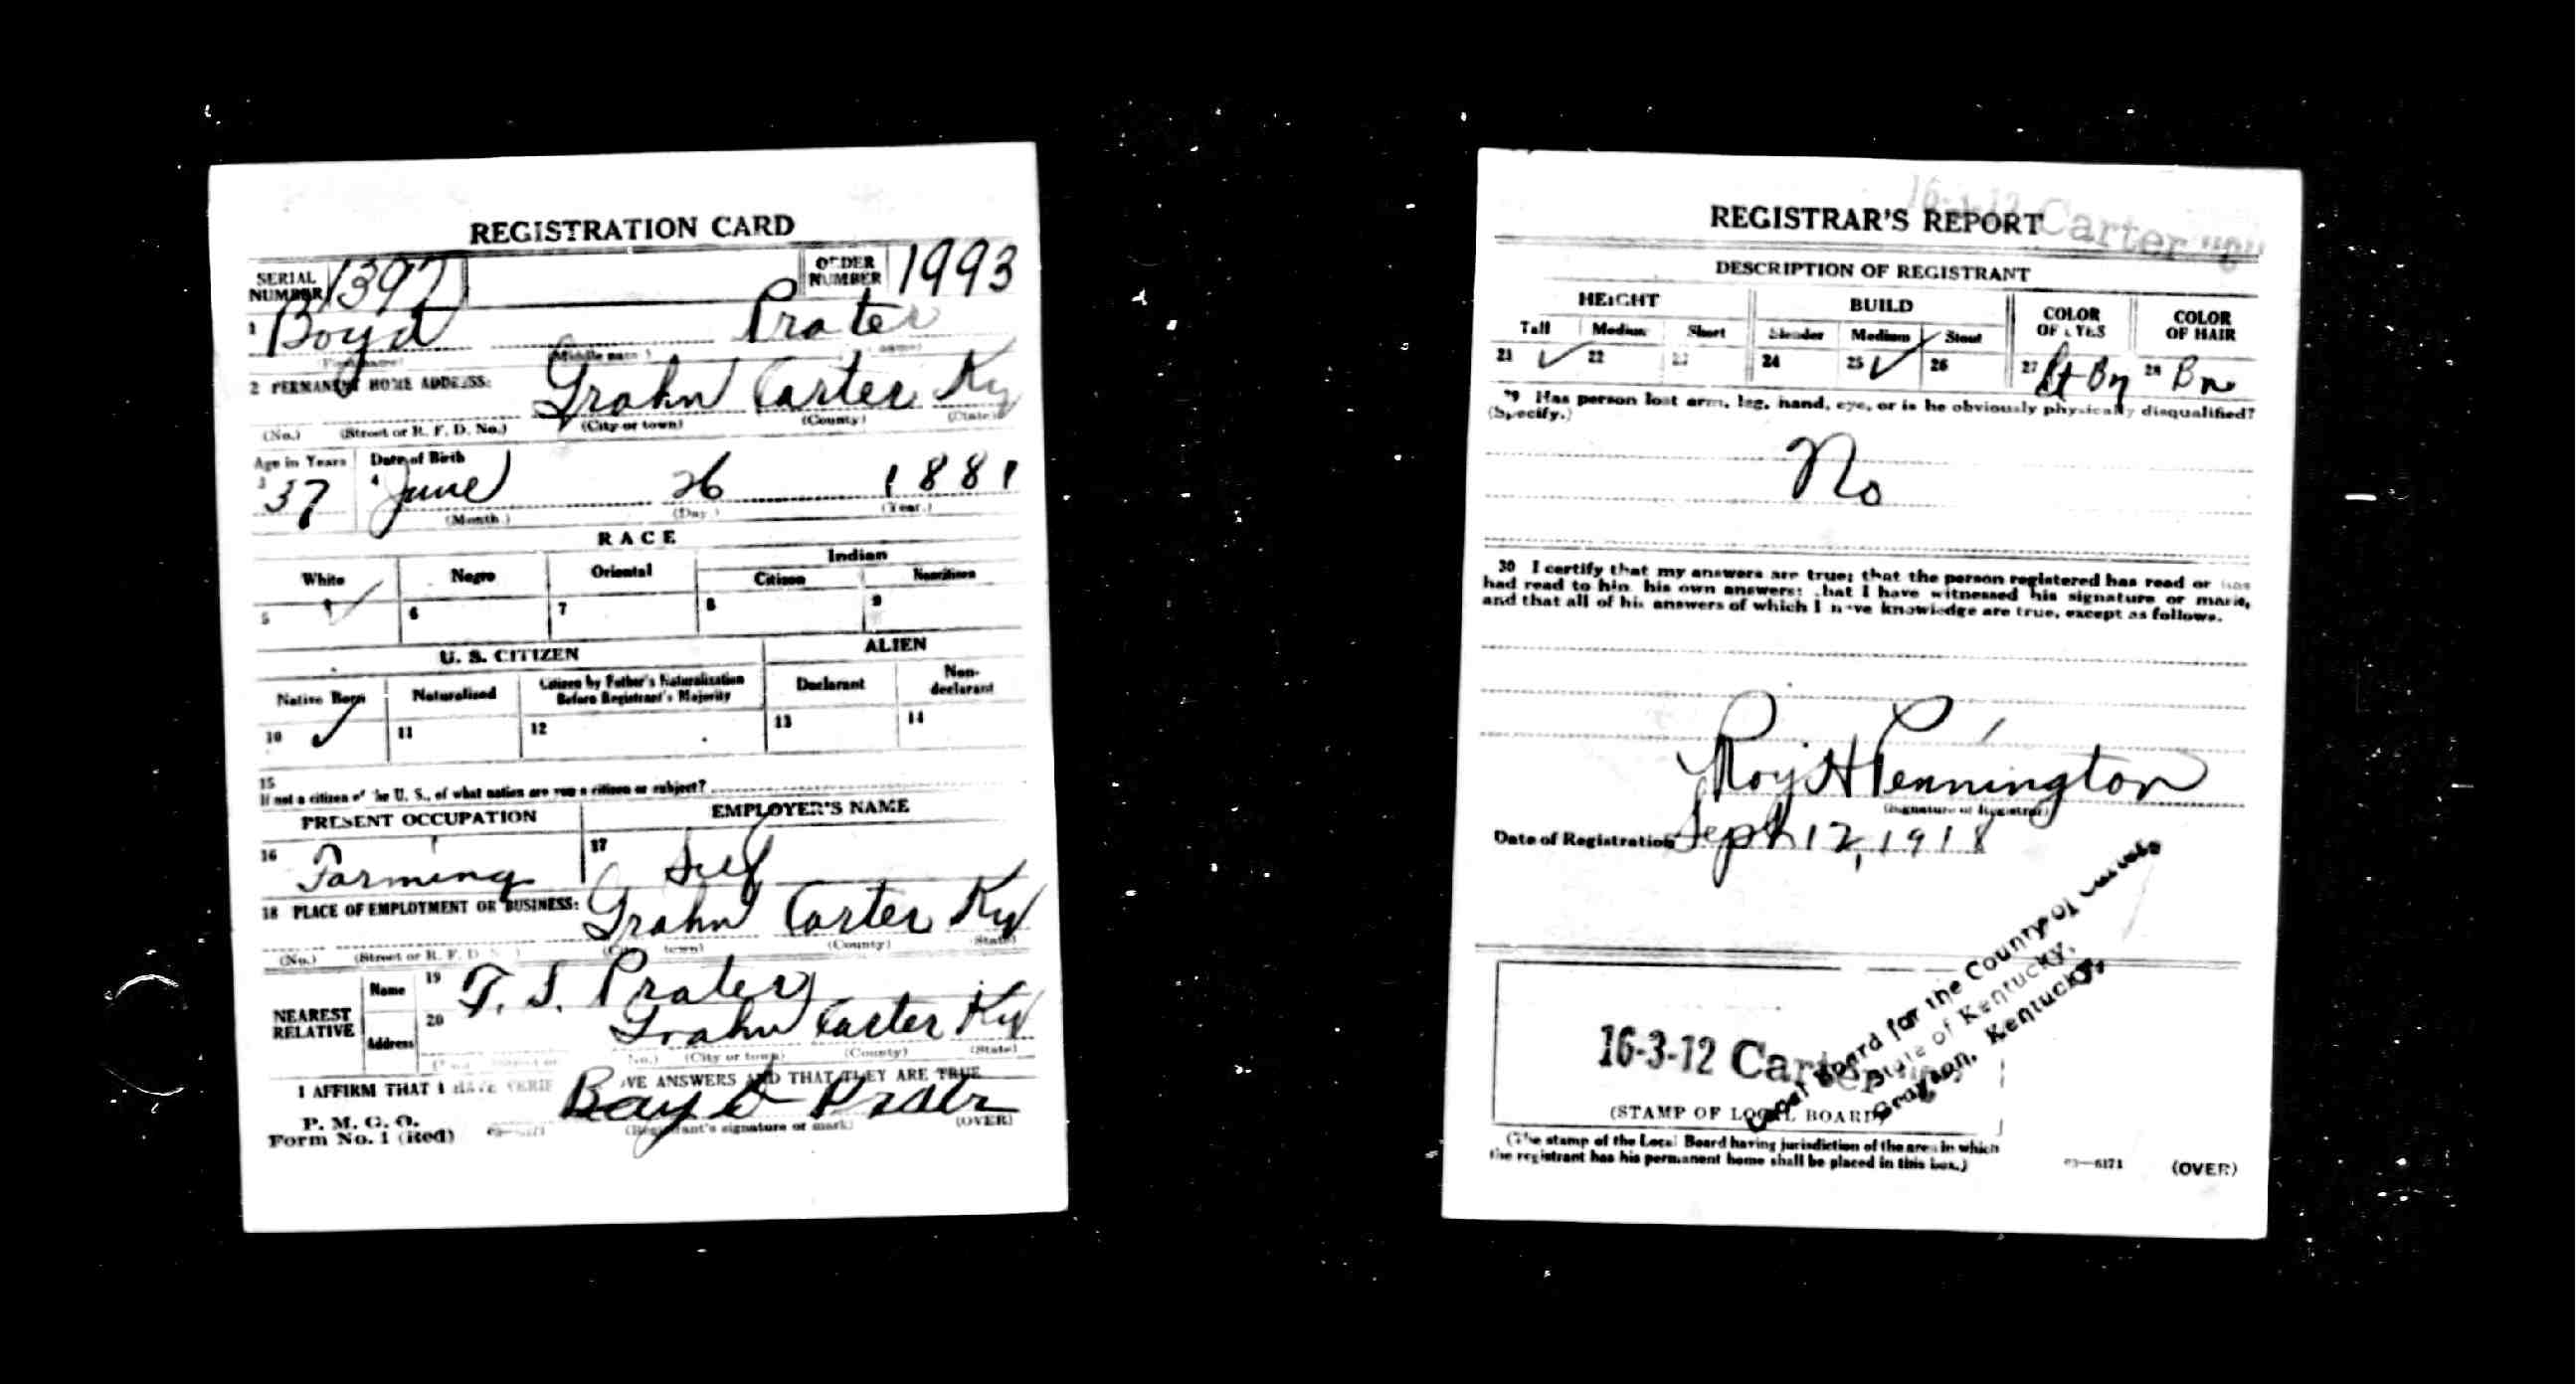 REGISTRATION CARD
SERIAL NUMBER 1397 ORDER NUMBER 1993
1 Boyd Prater
(Middle name)
2 PERMANENT HOME ADDRESS: Grahn Carter Ky
(No.) (Street or R. F. D. No.) (City or town) (County) (State)
Age in Years Date of Birth
3 37 4 June 26 1881
(Month.) (Day.) (Year.)
RACE
White Negro Oriental Indian
Citizen Noncitizen
5 ✓ 6 7 8 9
U. S. CITIZEN ALIEN
Native Born Naturalized Citizen by Father's Naturalization Before Registrant's Majority Declarant Non-declarant
10 ✓ 11 12 13 14
15
If not a citizen of the U. S., of what nation are you a citizen or subject?
PRESENT OCCUPATION EMPLOYER'S NAME
16 Farming 17 Self
18 PLACE OF EMPLOYMENT OR BUSINESS: Grahn Carter Ky
(No.) (Street or R. F. D. (City town) (County) (State)
NEAREST RELATIVE Name 19 T. S. Prater
Address 20 Grahn Carter Ky
(No.) (City or town) (County) (State)
I AFFIRM THAT I HAVE VERIF VE ANSWERS AND THAT THEY ARE TRUE
P. M. G. O.
Form No. 1 (Red) Boyd Prater
(Registrant's signature or mark) (OVER)
16-3-12 Carter "C"
REGISTRAR'S REPORT
DESCRIPTION OF REGISTRANT
HEIGHT BUILD COLOR OF EYES COLOR OF HAIR
Tall Medium Short Slender Medium Stout
21 ✓ 22 23 24 25 ✓ 26 27 Lt Bn 28 Bn
29 Has person lost arm, leg, hand, eye, or is he obviously physically disqualified?
(Specify.)
No
30 I certify that my answers are true; that the person registered has read or has
had read to him his own answers; that I have witnessed his signature or mark,
and that all of his answers of which I have knowledge are true, except as follows.
Roy H Pennington
(Signature of Registrar)
Date of Registration Sept 12, 1918
Local Board for the County of Carter
State of Kentucky,
Grayson, Kentucky.
16-3-12 Carter
(STAMP OF LOCAL BOARD)
(The stamp of the Local Board having jurisdiction of the area in which
the registrant has his permanent home shall be placed in this box.)
03—6171 (OVER)